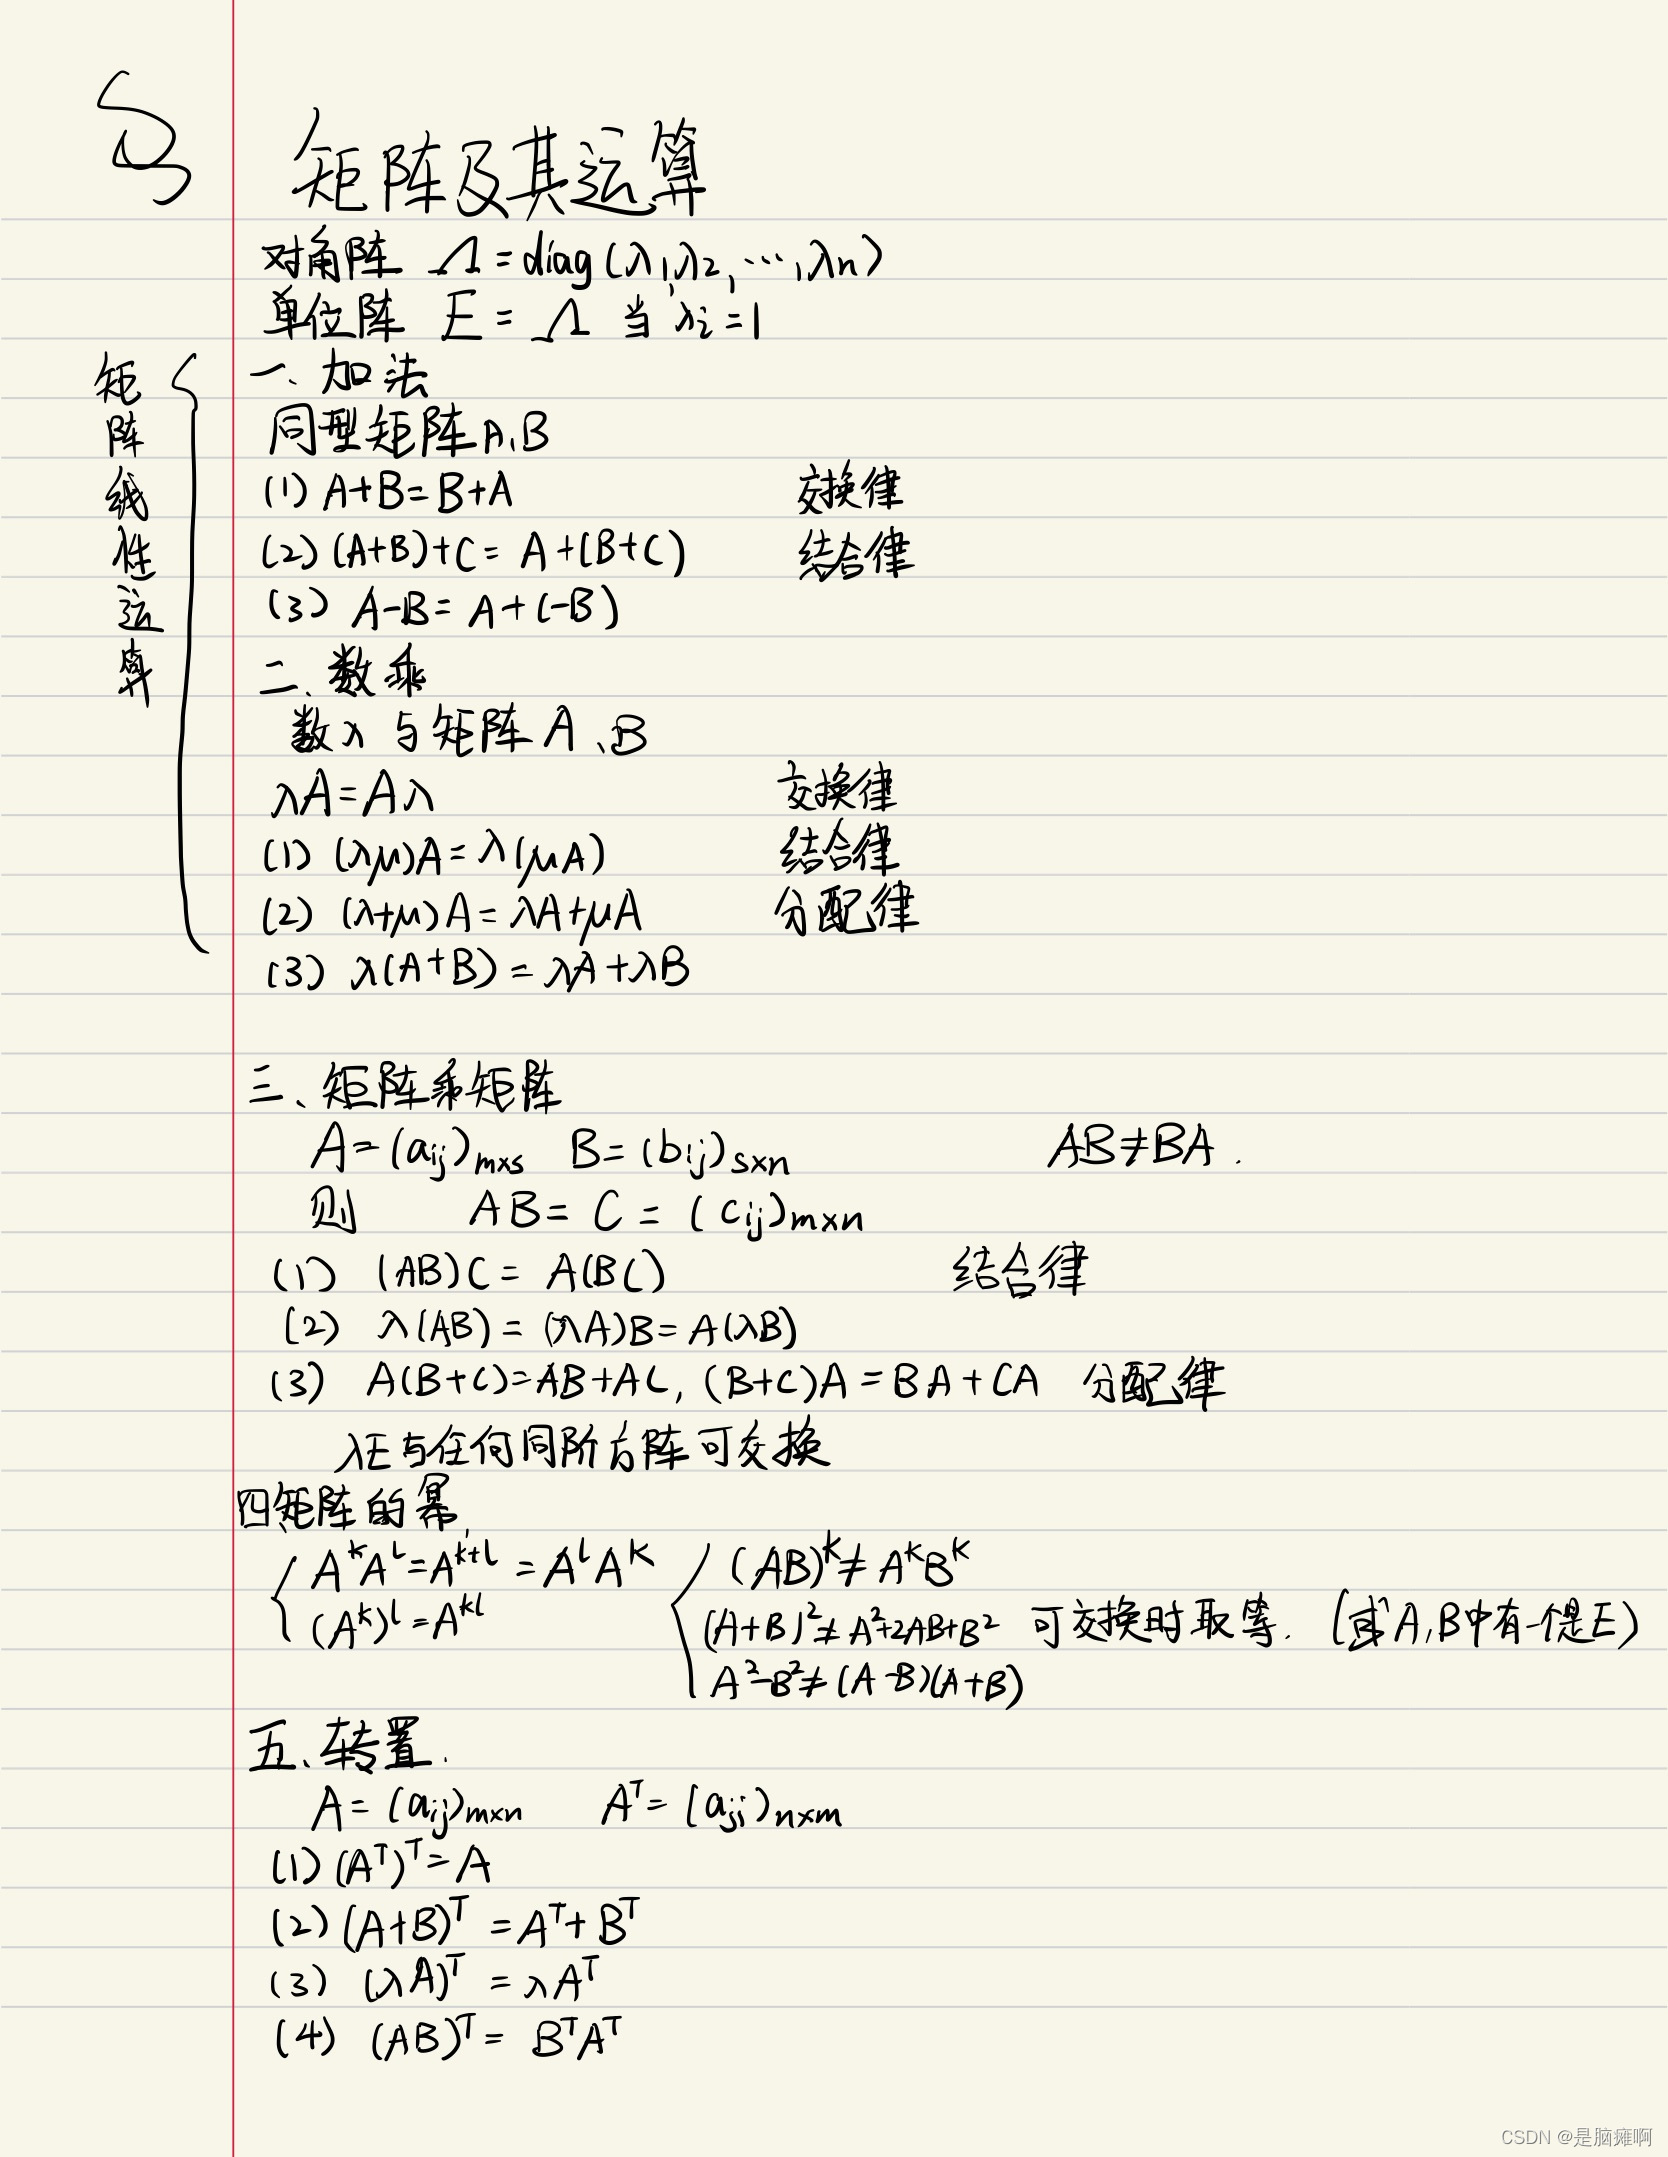 § 矩阵及其运算
对角阵 Λ=diag(λ1,λ2,⋯,λn)
单位阵 E=Λ 当 λi=1
矩阵线性运算
一、加法
同型矩阵A、B
(1) A+B=B+A 交换律
(2) (A+B)+C=A+(B+C) 结合律
(3) A-B=A+(-B)
二、数乘
数λ与矩阵A、B
λA=Aλ 交换律
(1) (λμ)A=λ(μA) 结合律
(2) (λ+μ)A=λA+μA 分配律
(3) λ(A+B)=λA+λB
三、矩阵乘矩阵
A=(aij)m×s B=(bij)s×n AB≠BA.
则 AB=C=(cij)m×n
(1) (AB)C=A(BC) 结合律
(2) λ(AB)=(λA)B=A(λB)
(3) A(B+C)=AB+AC, (B+C)A=BA+CA 分配律
λE与任何同阶方阵可交换
四、矩阵的幂
A^kA^l=A^(k+l)=A^lA^k (AB)^k≠A^kB^k
(A^k)^l=A^(kl) (A+B)²≠A²+2AB+B² 可交换时取等. (或A,B中有一个是E)
A²-B²≠(A-B)(A+B)
五、转置.
A=(aij)m×n A^T=(aji)n×m
(1) (A^T)^T=A
(2) (A+B)^T=A^T+B^T
(3) (λA)^T=λA^T
(4) (AB)^T=B^TA^T
CSDN @是脑瘫啊